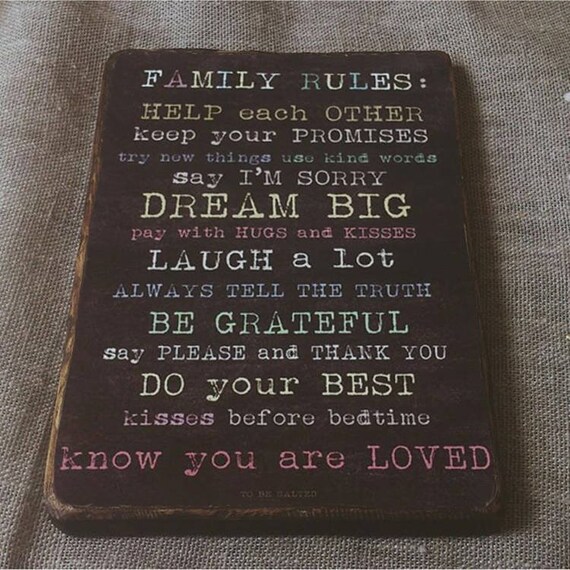 FAMILY RULES:
HELP each OTHER
keep your PROMISES
try new things use kind words
say I'M SORRY
DREAM BIG
pay with HUGS and KISSES
LAUGH a lot
ALWAYS TELL THE TRUTH
BE GRATEFUL
say PLEASE and THANK YOU
DO your BEST
kisses before bedtime
know you are LOVED
TO BE SALTED